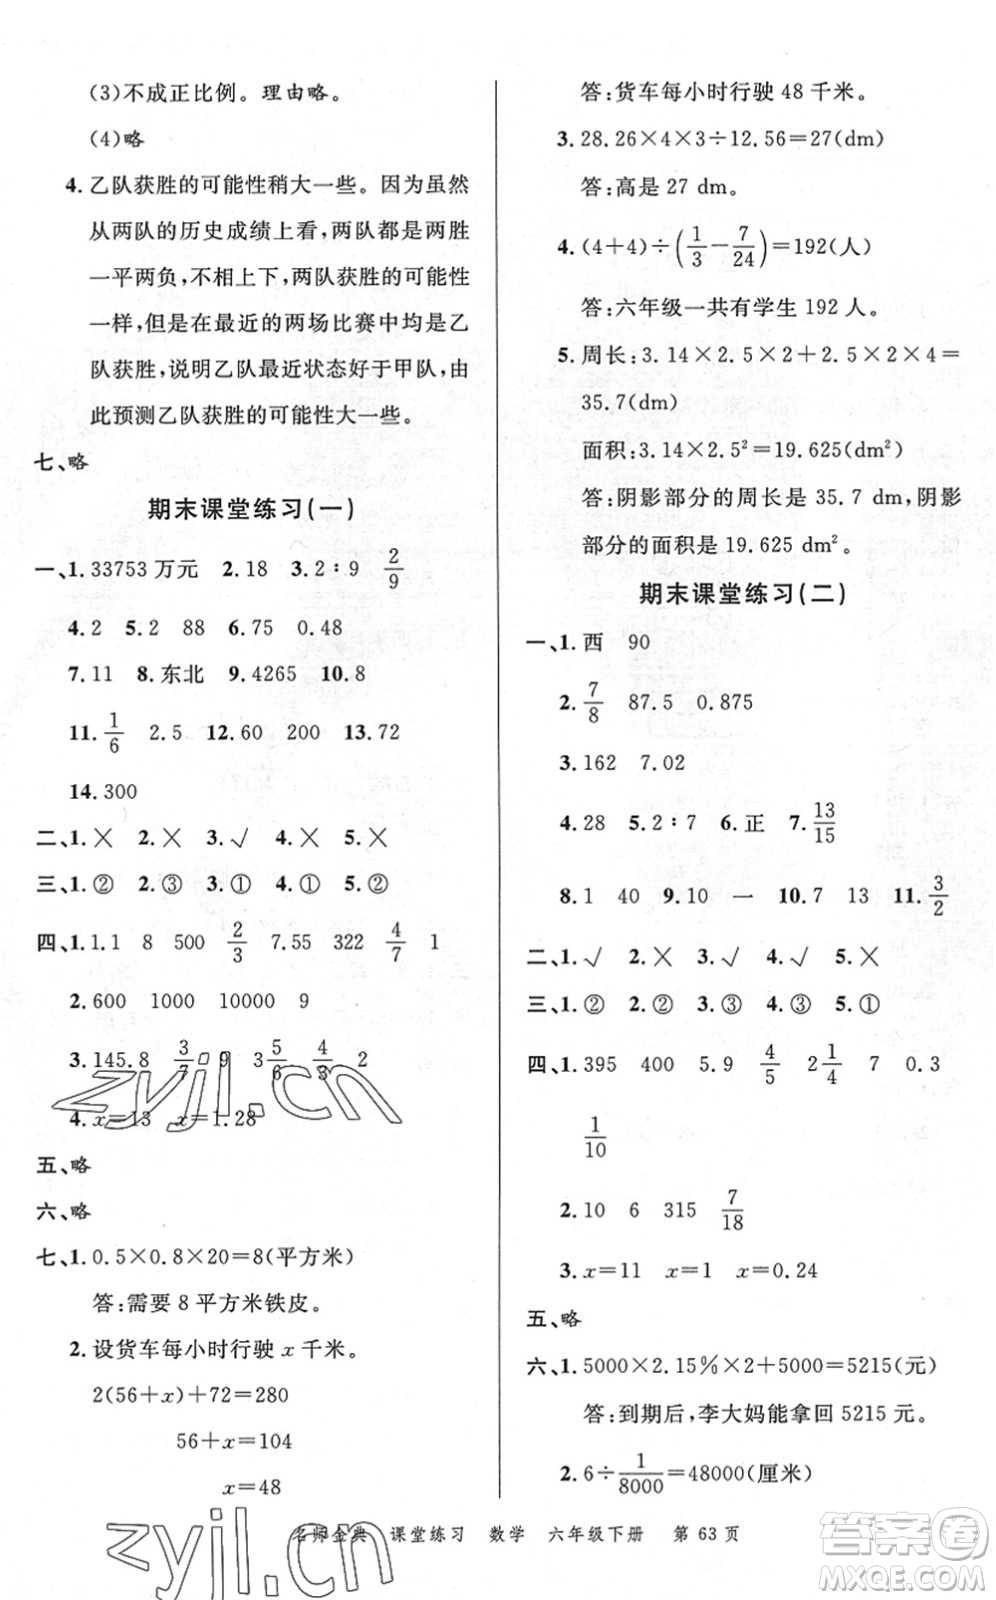 (3)不成正比例。理由略。
(4)略
4. 乙队获胜的可能性稍大一些。因为虽然
从两队的历史成绩上看,两队都是两胜
一平两负,不相上下,两队获胜的可能性
一样,但是在最近的两场比赛中均是乙
队获胜,说明乙队最近状态好于甲队,由
此预测乙队获胜的可能性大一些。
七、略
期末课堂练习(一)
一、1. 33753 万元 2. 18 3. 2∶9 2/9
4. 2 5. 2 88 6. 75 0.48
7. 11 8. 东北 9. 4265 10. 8
11. 1/6 2.5 12. 60 200 13. 72
14. 300
二、1. × 2. × 3. √ 4. × 5. ×
三、1. ② 2. ③ 3. ① 4. ① 5. ②
四、1. 1.1 8 500 2/3 7.55 322 4/7 1
2. 600 1000 10000 9
3. 145.8 3/7 9 3 5/6 4/3 2
4. x=13 x=1.28
五、略
六、略
七、1. 0.5×0.8×20=8(平方米)
答:需要 8 平方米铁皮。
2. 设货车每小时行驶 x 千米。
2(56+x)+72=280
56+x=104
x=48
答:货车每小时行驶 48 千米。
3. 28.26×4×3÷12.56=27(dm)
答:高是 27 dm。
4. (4+4)÷(1/3−7/24)=192(人)
答:六年级一共有学生 192 人。
5. 周长:3.14×2.5×2+2.5×2×4=
35.7(dm)
面积:3.14×2.5²=19.625(dm²)
答:阴影部分的周长是 35.7 dm,阴影
部分的面积是 19.625 dm²。
期末课堂练习(二)
一、1. 西 90
2. 7/8 87.5 0.875
3. 162 7.02
4. 28 5. 2∶7 6. 正 7. 13/15
8. 1 40 9. 10 一 10. 7 13 11. 3/2
二、1. √ 2. × 3. √ 4. √ 5. ×
三、1. ② 2. ② 3. ③ 4. ③ 5. ①
四、1. 395 400 5.9 4/5 2 1/4 7 0.3
1/10
2. 10 6 315 7/18
3. x=11 x=1 x=0.24
五、略
六、1. 5000×2.15%×2+5000=5215(元)
答:到期后,李大妈能拿回 5215 元。
2. 6÷1/8000=48000(厘米)
名师金典 课堂练习 数学 六年级下册 第 63 页
zyjl.cn
zyjl.cn
答案圈
MXQE.COM